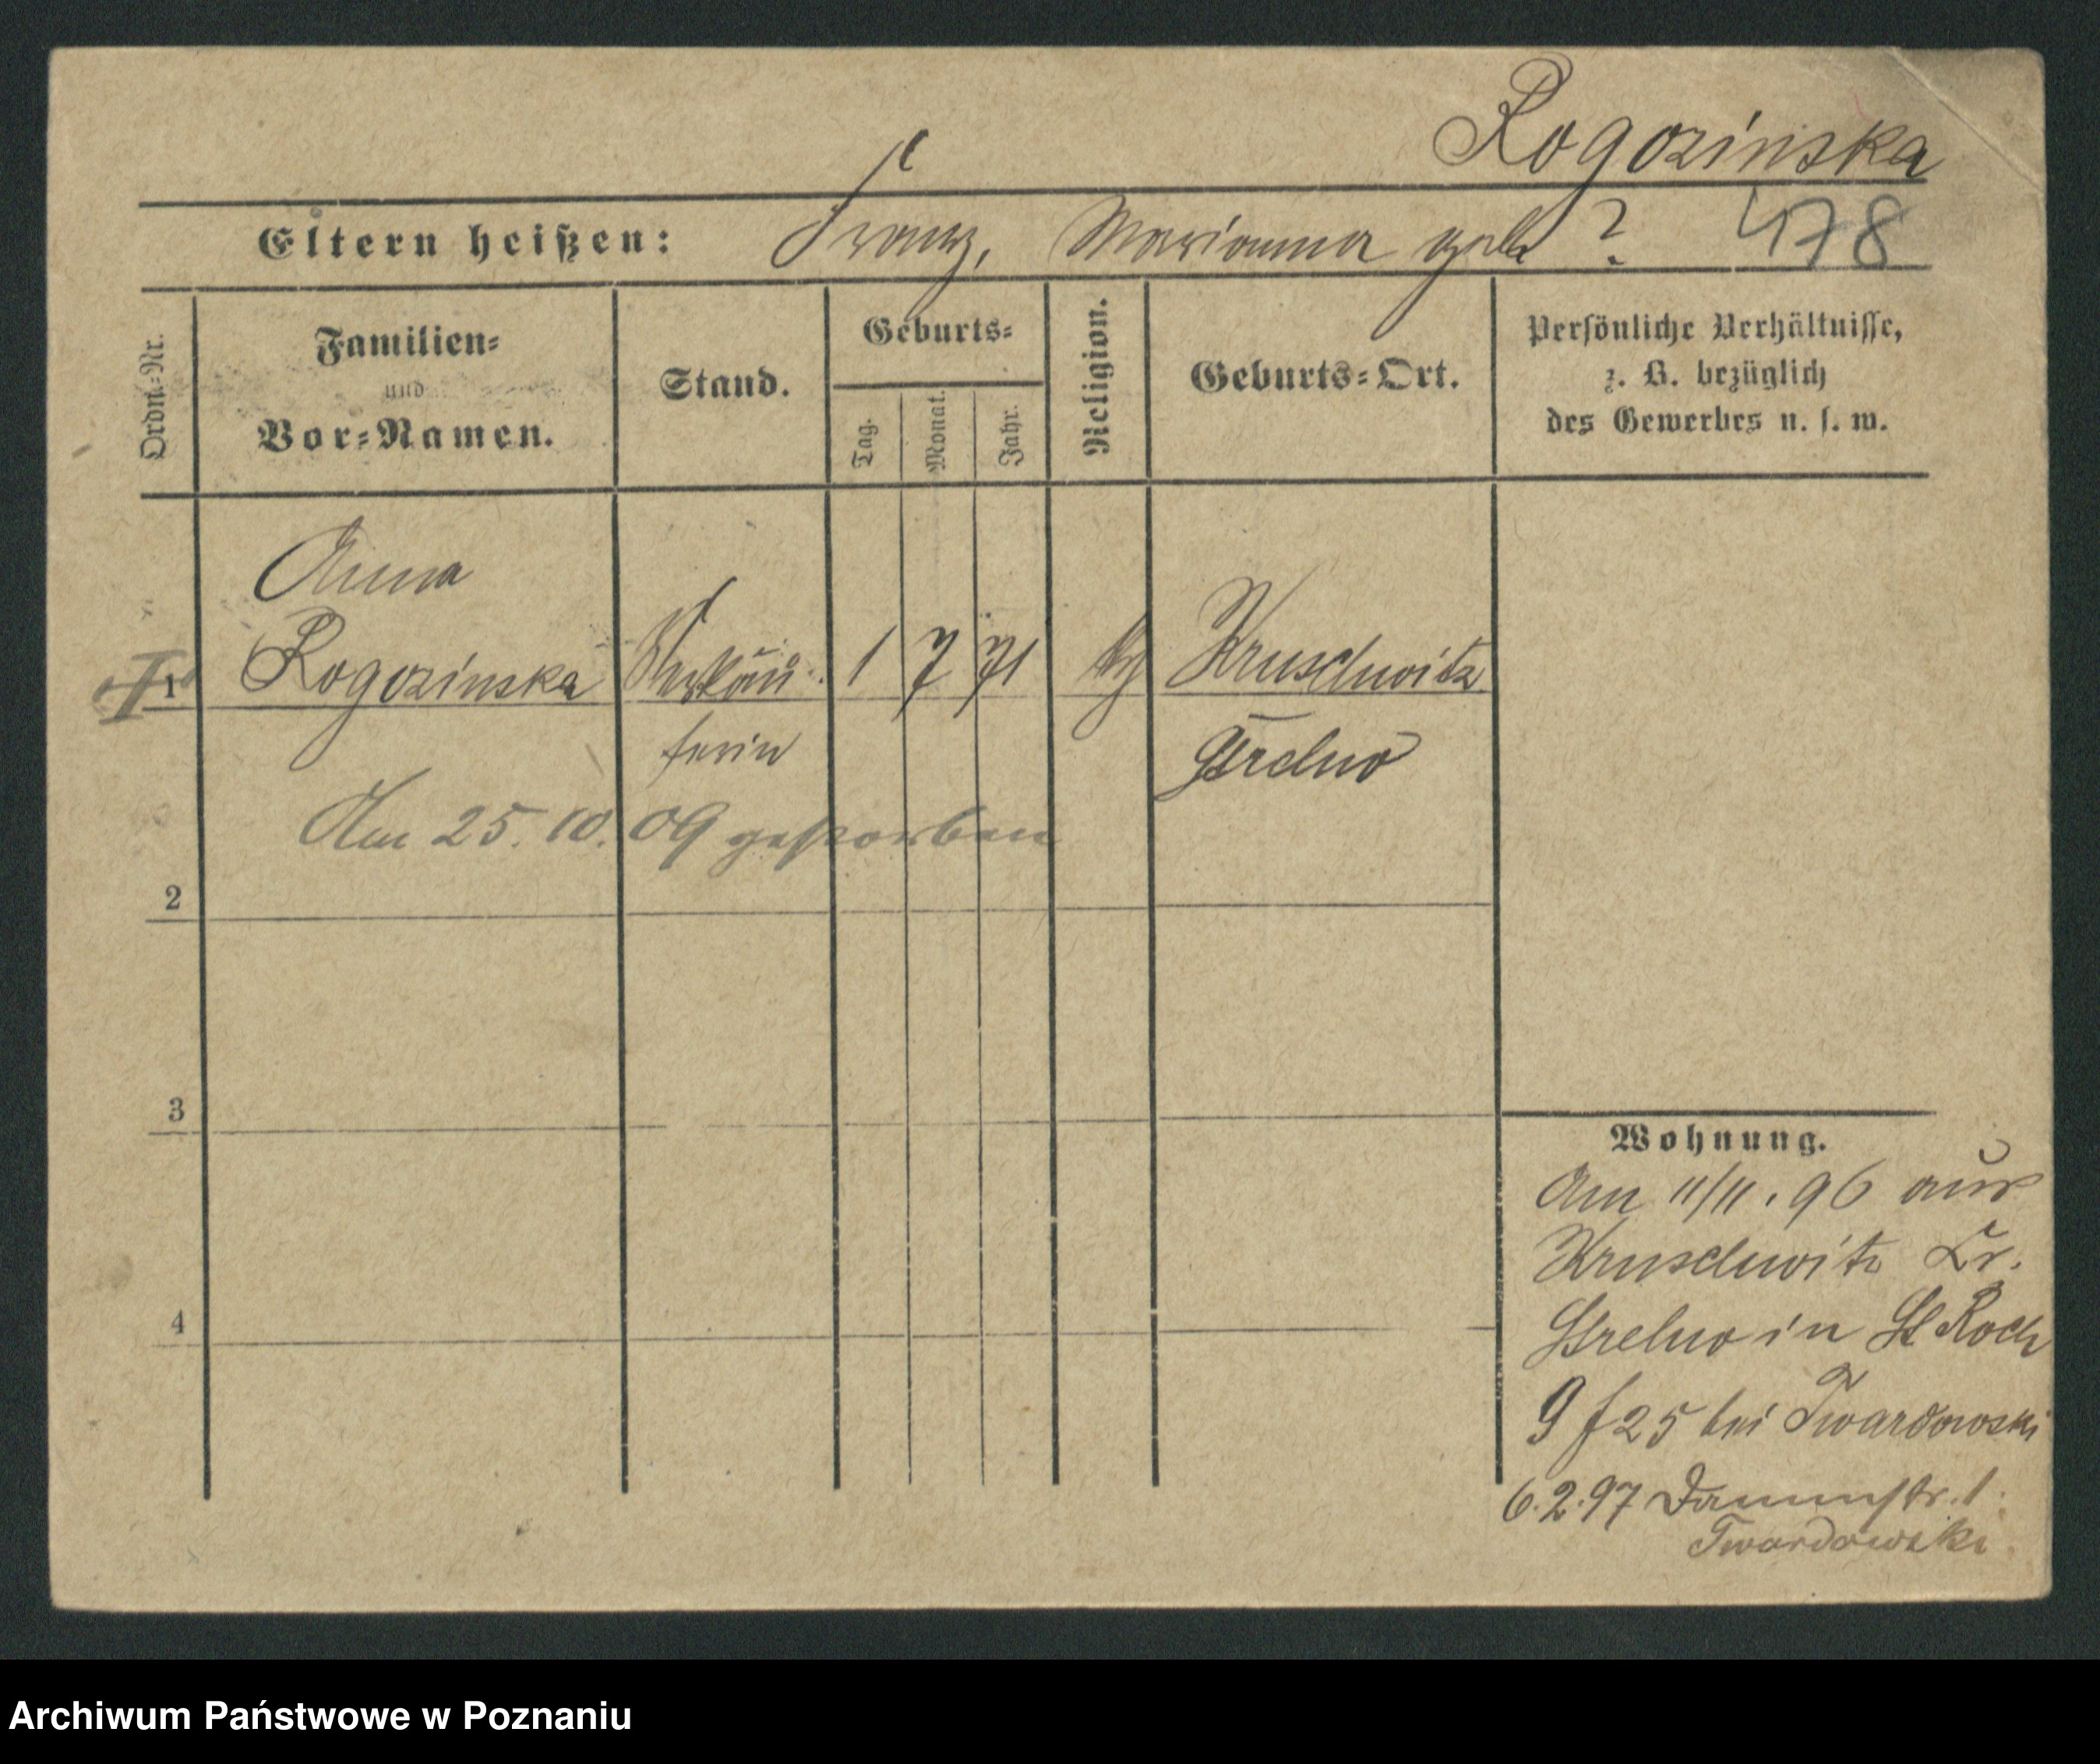 Rogozinska
Eltern heißen: Franz, Marianna geb ? 478
Ordn.=Nr.
Familien=
und
Vor=Namen.
Stand.
Geburts=
Tag.
Monat.
Jahr.
Religion.
Geburts=Ort.
Persönliche Verhältnisse,
z. B. bezüglich
des Gewerbes u. s. w.
Anna
1 Rogozinska Verkäu- 1 7 71 Kruschwitz
ferin Strelno
Am 25. 10. 09 gestorben
2
3
4
Wohnung.
Am 11/11. 96 aus
Kruschwitz Kr.
Strelno in St Roch
9 f 25 bei Twardowski
6.2.97 Dammstr. 1.
Twardowski
Archiwum Państwowe w Poznaniu